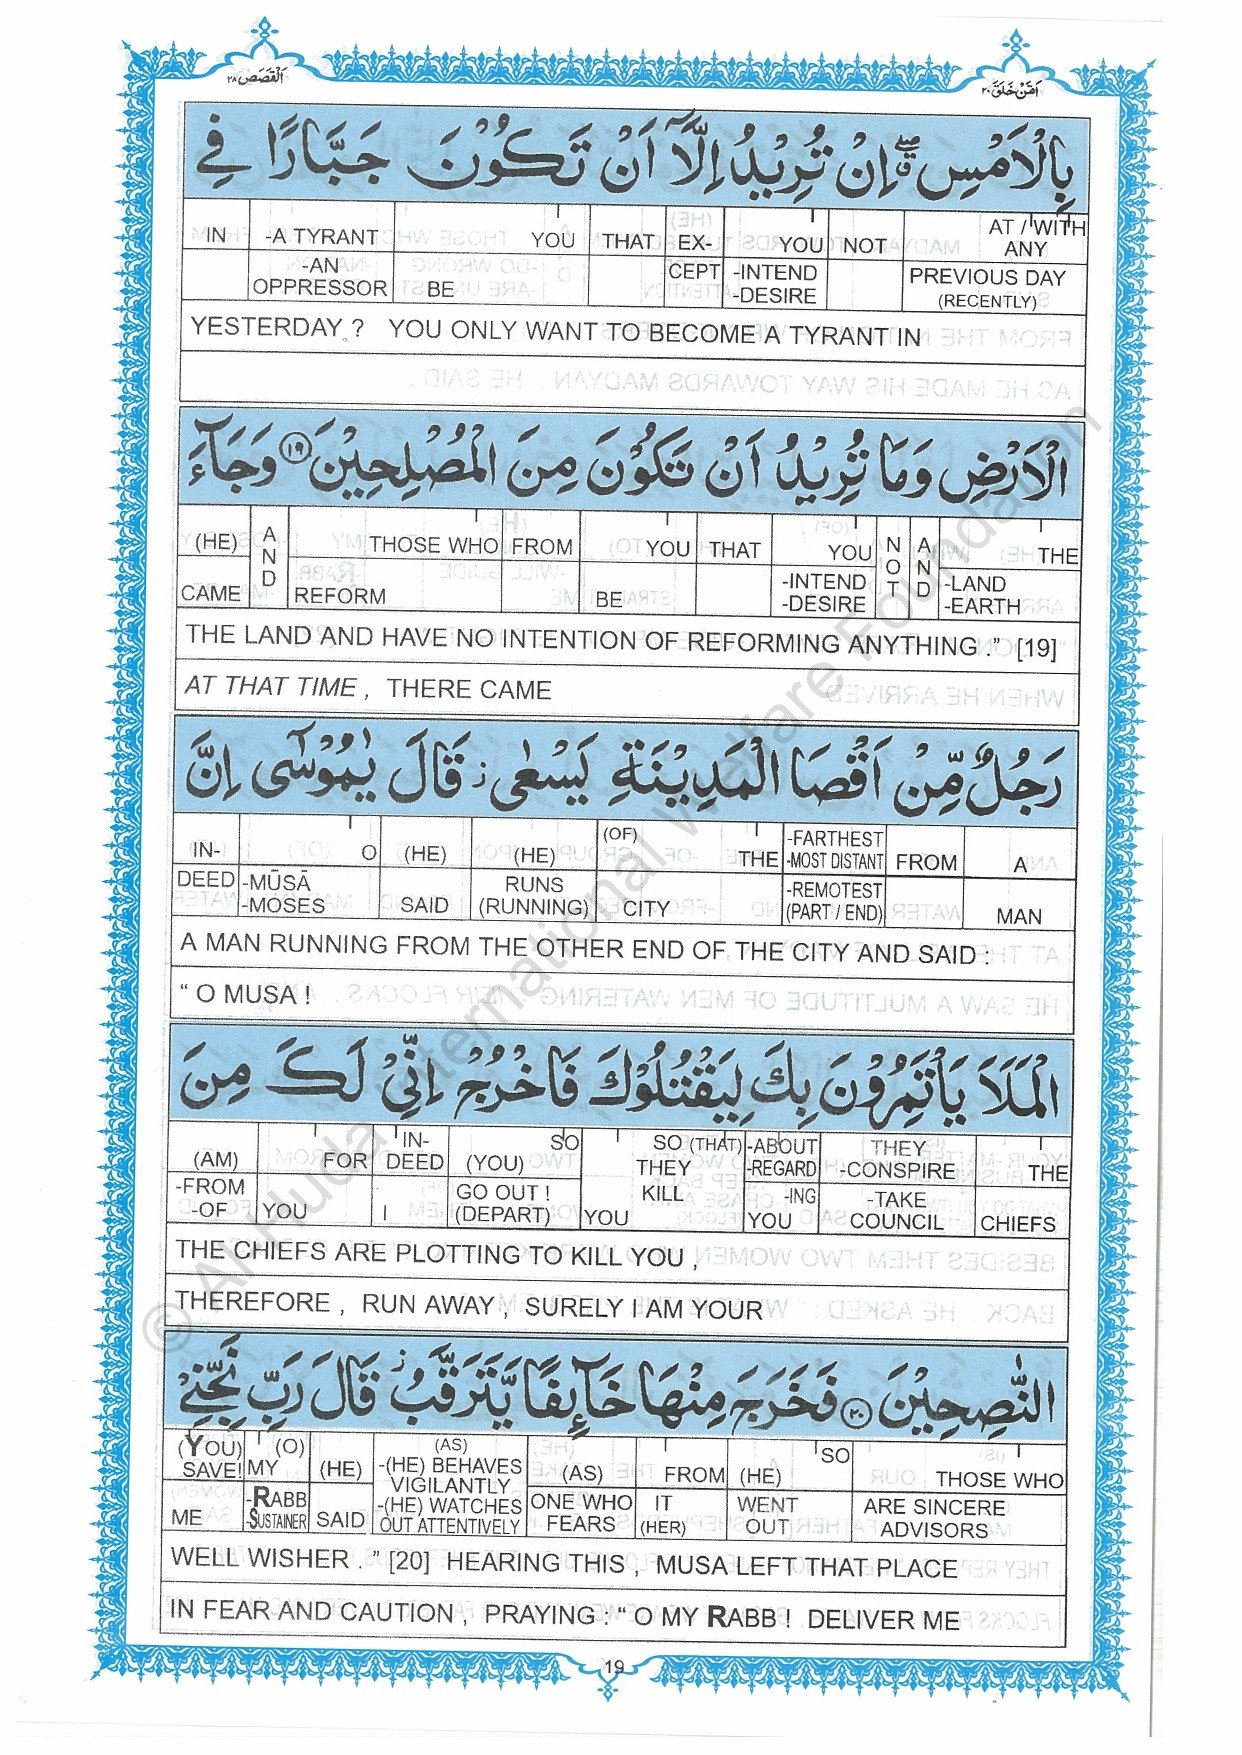 الْقَصَص ٢٨
اَمَّنْ خَلَقَ ٢٠
بِالْاَمْسِ ۖ اِنْ تُرِيْدُ اِلَّاۤ اَنْ تَكُوْنَ جَبَّارًا فِي
AT / WITH ANY PREVIOUS DAY (RECENTLY) | NOT | YOU -INTEND -DESIRE | EX- CEPT | THAT | YOU BE | -A TYRANT -AN OPPRESSOR | IN
YESTERDAY ? YOU ONLY WANT TO BECOME A TYRANT IN
الْاَرْضِ وَمَا تُرِيْدُ اَنْ تَكُوْنَ مِنَ الْمُصْلِحِيْنَ ﴿١٩﴾ وَجَآءَ
THE -LAND -EARTH | AND | NOT | YOU -INTEND -DESIRE | THAT | YOU BE | FROM | THOSE WHO REFORM | AND | (HE) CAME
THE LAND AND HAVE NO INTENTION OF REFORMING ANYTHING . ” [19]
AT THAT TIME , THERE CAME
رَجُلٌ مِّنْ اَقْصَا الْمَدِيْنَةِ يَسْعٰى ز قَالَ يٰمُوْسٰۤى اِنَّ
A MAN | FROM | -FARTHEST -MOST DISTANT -REMOTEST (PART / END) | (OF) THE CITY | (HE) RUNS (RUNNING) | (HE) SAID | O -MŪSĀ -MOSES | IN- DEED
A MAN RUNNING FROM THE OTHER END OF THE CITY AND SAID :
“ O MUSA !
الْمَلَاَ يَاْتَمِرُوْنَ بِكَ لِيَقْتُلُوْكَ فَاخْرُجْ اِنِّيْ لَكَ مِنَ
THE CHIEFS | THEY -CONSPIRE -TAKE COUNCIL | -ABOUT -REGARD -ING YOU | SO (THAT) THEY KILL YOU | SO (YOU) GO OUT ! (DEPART) | IN- DEED I | FOR YOU | (AM) -FROM -OF
THE CHIEFS ARE PLOTTING TO KILL YOU ,
THEREFORE , RUN AWAY , SURELY I AM YOUR
النّٰصِحِيْنَ ﴿٢٠﴾ فَخَرَجَ مِنْهَا خَآئِفًا يَّتَرَقَّبُ ز قَالَ رَبِّ نَجِّنِيْ
THOSE WHO ARE SINCERE ADVISORS | SO (HE) WENT OUT | FROM IT (HER) | (AS) ONE WHO FEARS | (AS) -(HE) BEHAVES VIGILANTLY -(HE) WATCHES OUT ATTENTIVELY | (HE) SAID | (O) MY -RABB -SUSTAINER | (YOU) SAVE! ME
WELL WISHER . ” [20] HEARING THIS , MUSA LEFT THAT PLACE
IN FEAR AND CAUTION , PRAYING : “ O MY RABB ! DELIVER ME
19
© Al-Huda International Welfare Foundation